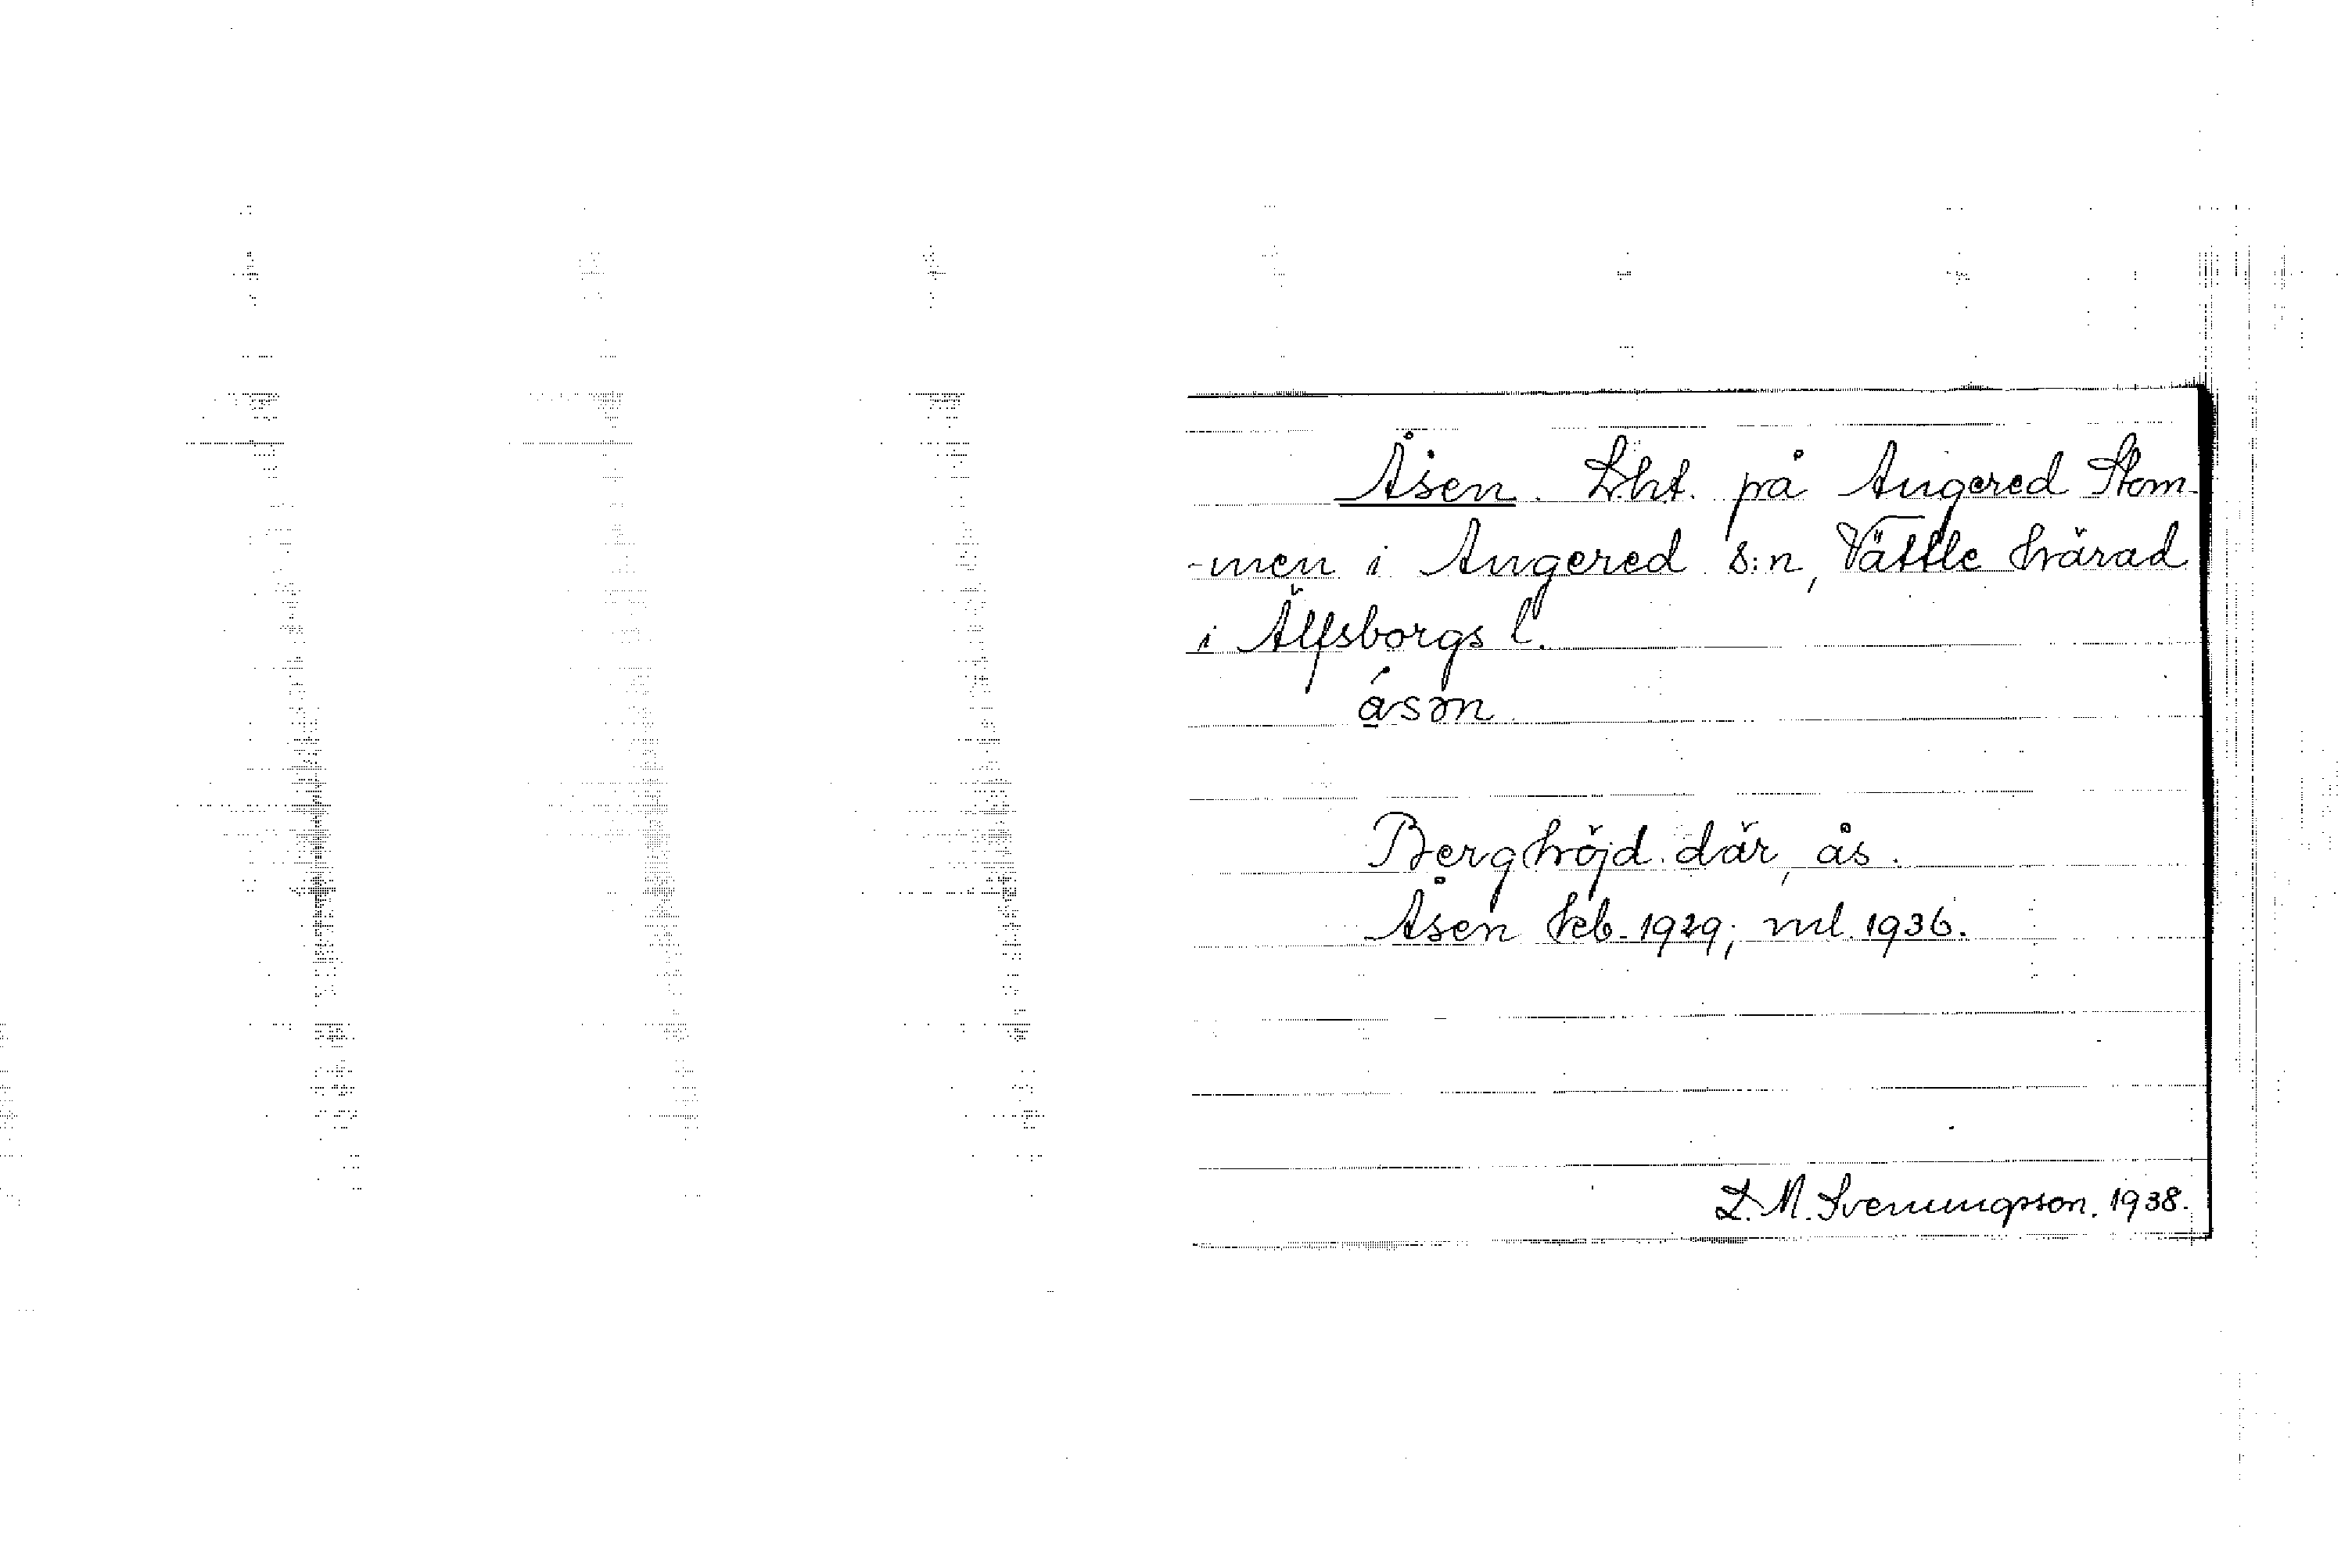 Åsen. Lht. på Angered Stom-
-men i Angered s:n, Vättle härad
i Älfsborgs l.
åsən
Berghöjd där, ås.
Åsen feb. 1929; ml. 1936.
L. M. Svenungsson. 1938.